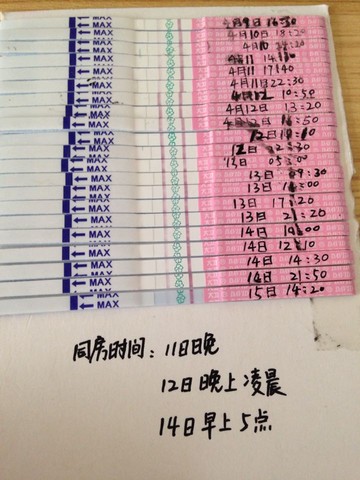 MAX 4月9日 16:30
MAX 4月10日 18:20
MAX 4月10
MAX 4月11 14:
MAX 4月11 17:40
MAX 4月11日22:30
MAX 4月12 10:50
MAX 4月12日 13:20
MAX 4月12日 16:50
MAX 12日
MAX 12日 22:30
MAX 13日 05:00
MAX 13日 09:30
MAX 13日
MAX 13日 17:20
MAX 13日 21:20
MAX 14日
MAX 14日 12:10
MAX 14日 14:30
MAX 14日 21:50
MAX 15日 14:20
同房时间:11日晚
12日晚上凌晨
14日早上5点